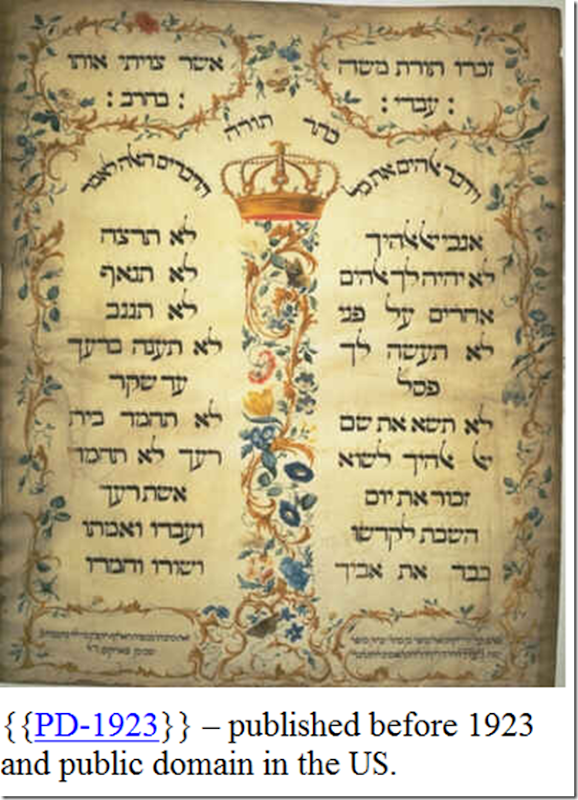 זכרו תורת משה
: עבדי :
אשר צויתי אותו
: בחרב :
כתר תורה
וידבר אלהים את כל
הדברים האלה לאמר
אנכי יי אלהיך
לא יהיה לך אלהים
אחרים על פני
לא תעשה לך
פסל
לא תשא את שם
יי אלהיך לשוא
זכור את יום
השבת לקדשו
כבד את אביך
לא תרצח
לא תנאף
לא תגנב
לא תענה ברעך
עד שקר
לא תחמד בית
רעך לא תחמד
אשת רעך
ועבדו ואמתו
ושורו וחמרו
{{PD-1923}} – published before 1923
and public domain in the US.